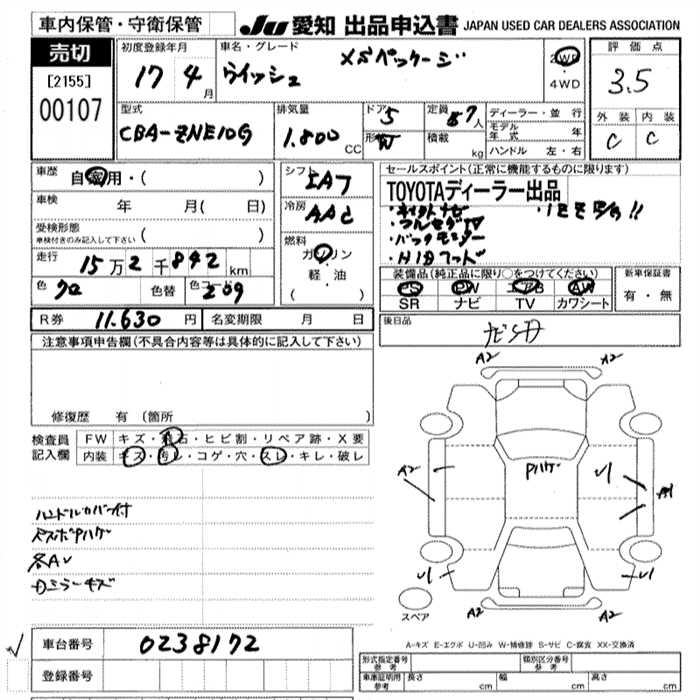 車内保管・守衛保管
JU 愛知 出品申込書 JAPAN USED CAR DEALERS ASSOCIATION
売切
[2155]
00107
初度登録年月
17 4 月
車名・グレード
ウイッシュ XSパッケージ
2WD
4WD
評価点
3.5
外装 内装
C C
型式
CBA-ZNE10G
排気量
1.800 CC
ドア 5
形 W
定員 7人
積載 kg
ディーラー・並行
モデル年式 年
ハンドル 左・右
車歴 自家用・( )
車検 年 月( 日)
受検形態
車検付きのみ記入して下さい ( )
走行 15万2千842 km
色 クロ 色替 色コード 209
シフト IAT
冷房 AAC
燃料
ガソリン
軽・油
( )
セールスポイント(正常に機能するものに限ります)
TOYOTAディーラー出品
・ナビ
・フルセグTV
・バックモニター
・HID
装備品(純正品に限り○をつけてください)
PS PW エアB AW
SR ナビ TV カワシート
新車保証書
有・無
R券 11.630 円 名変期限 月 日
後日品
ナビSD
注意事項申告欄(不具合内容等は具体的に記入して下さい)
修復歴 有(箇所 )
検査員記入欄
FW キズ・飛石・ヒビ割・リペア跡・X要
内装 キズ・汚レ・コゲ・穴・スレ・キレ・破レ
ハンドルカバー付
各AU
キズ
A2 A2
A2 Pハゲ U1 A1
U1 U1
A2 A2
スペア
A-キズ E-エクボ U-凹み W-補修跡 S-サビ C-腐食 XX-交換済
車台番号 0238172
登録番号
形式指定番号参考 類別区分番号参考
車庫証明用参考 長さ cm 幅 cm 高さ cm